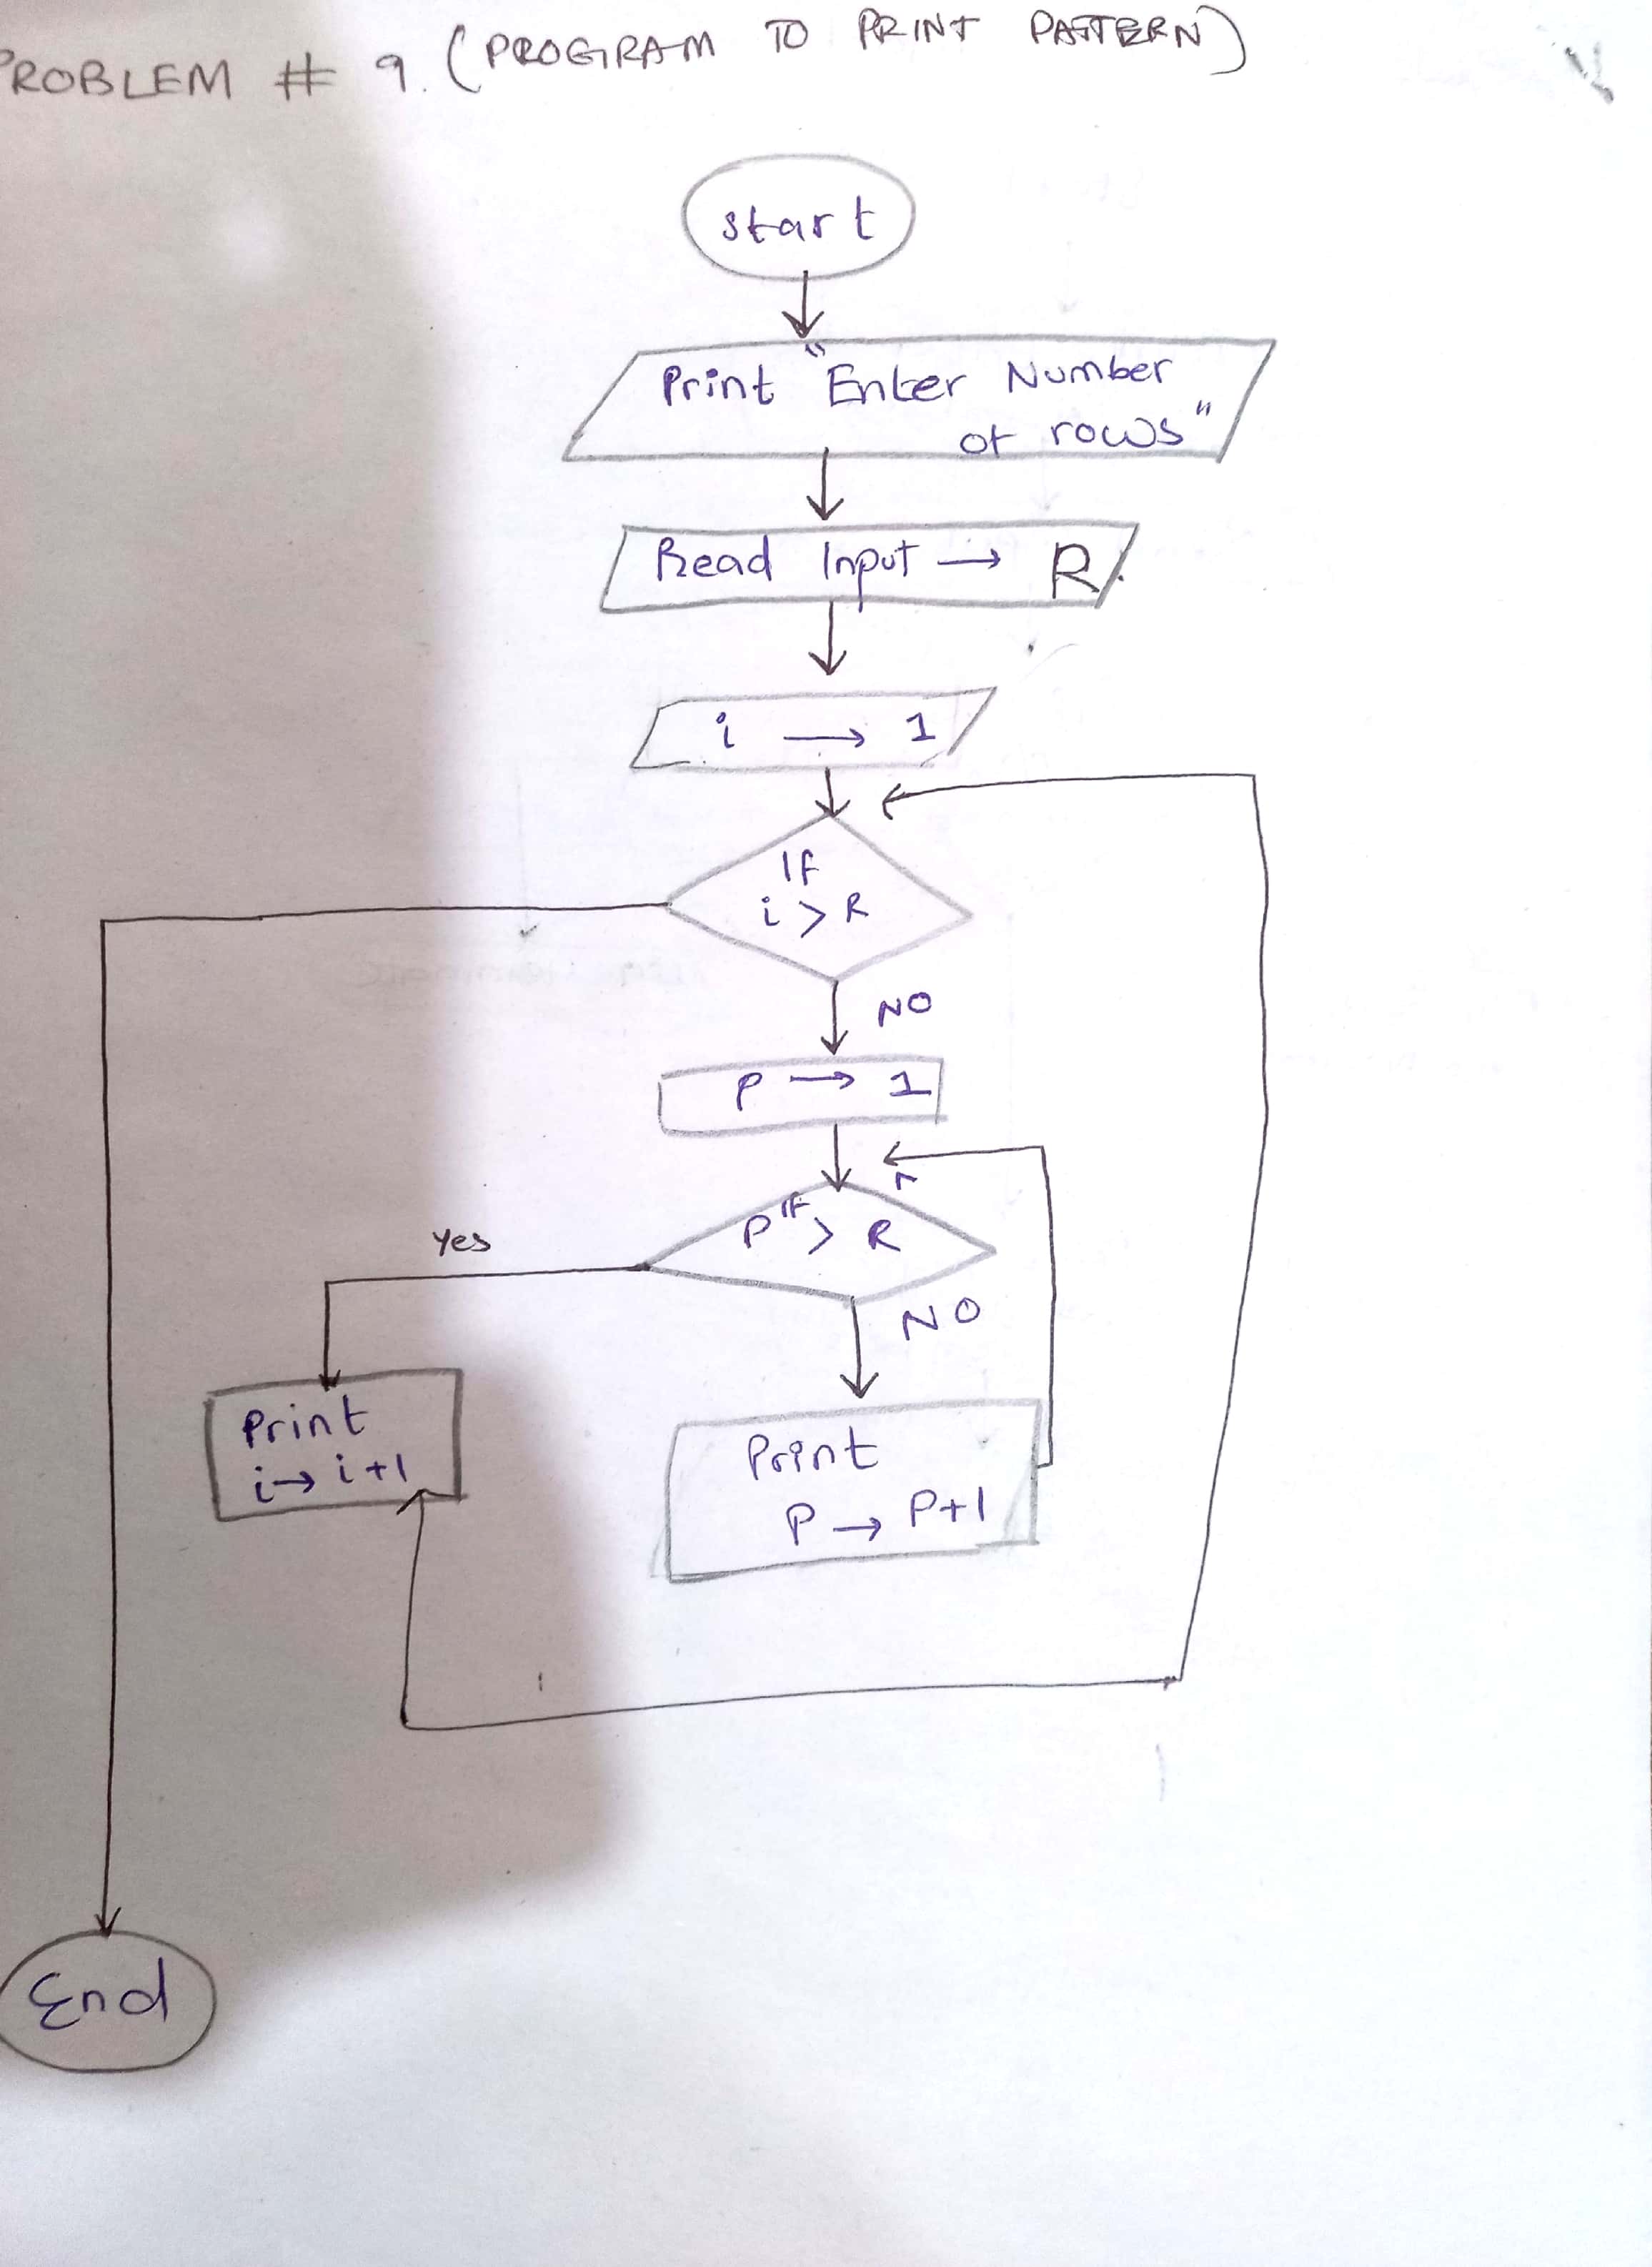 PROBLEM # 9. (PROGRAM TO PRINT PATTERN)
start
Print "Enter Number
of rows"
Read Input → R
i → 1
If
i > R
NO
P → 1
If
P > R
Yes
NO
Print
i → i+1
Print
P → P+1
End